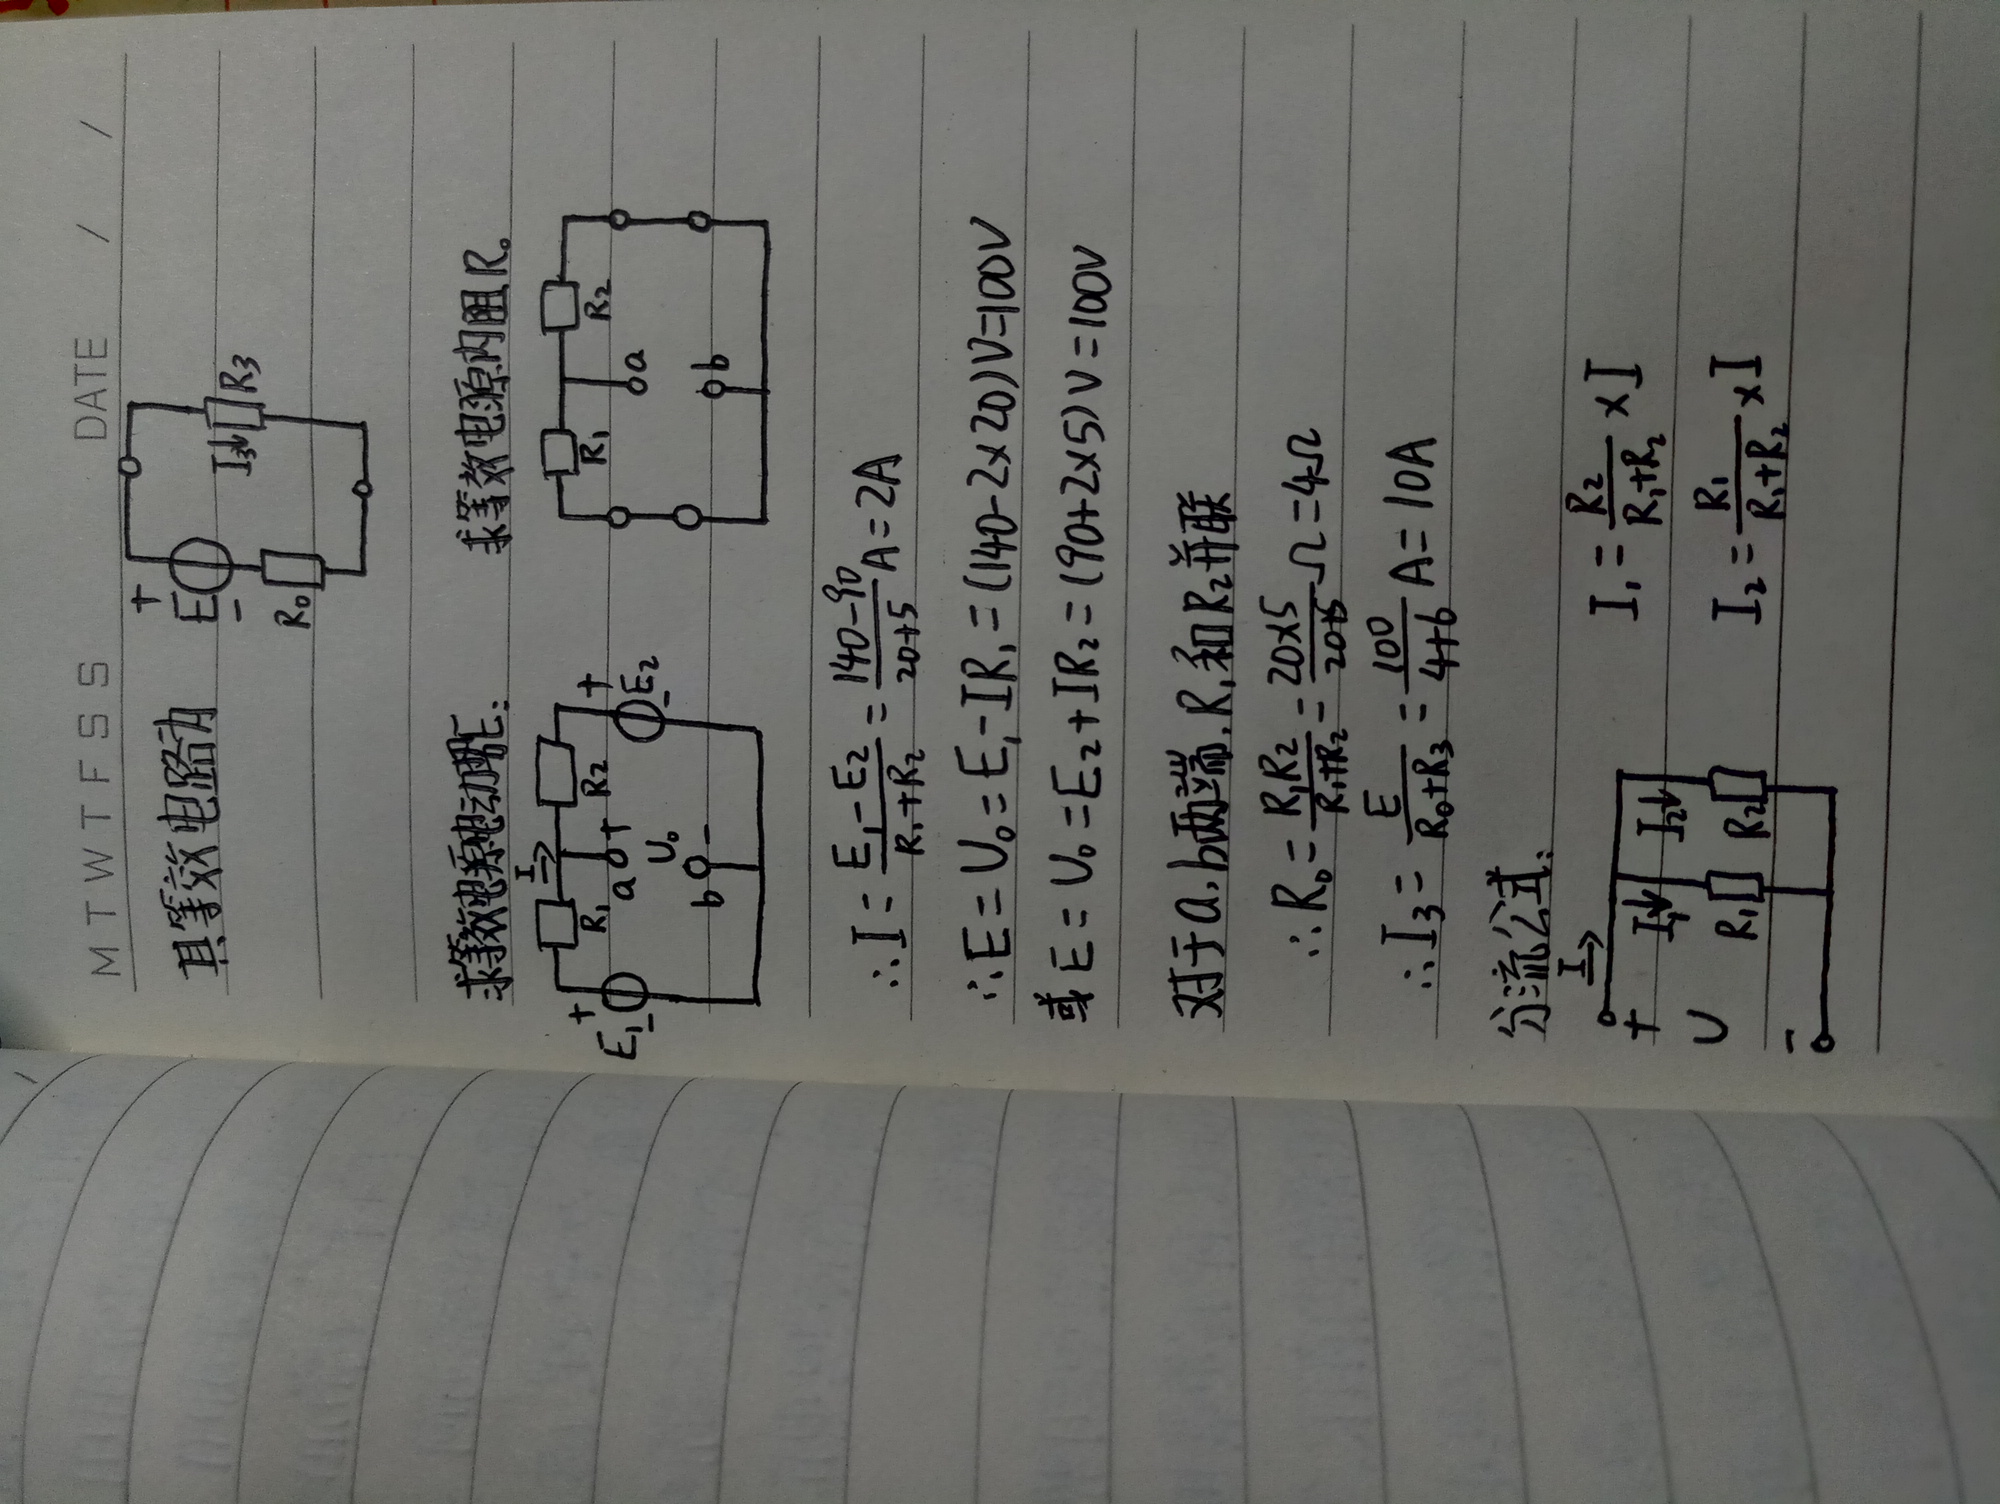 M T W T F S S DATE / /
其等效电路为
+
E
-
R₀
I₃↓ R₃
求等效电源电动势E: 求等效电源内阻R₀
I →
R₁ R₂
+ E₁ -
a +
U₀
b -
+ E₂ -
R₁ R₂
a
b
∴I = (E₁-E₂)/(R₁+R₂) = (140-90)/(20+5) A = 2A
∴E = U₀ = E₁-IR₁ = (140-2×20)V=100V
或E = U₀ = E₂+IR₂ = (90+2×5)V = 100V
对于a,b两端,R₁和R₂并联
∴R₀ = R₁R₂/(R₁+R₂) = (20×5)/(20+5) Ω = 4Ω
∴I₃ = E/(R₀+R₃) = 100/(4+6) A = 10A
分流公式:
I →
+
U
-
I₁↓ I₂↓
R₁ R₂
I₁ = R₂/(R₁+R₂) × I
I₂ = R₁/(R₁+R₂) × I